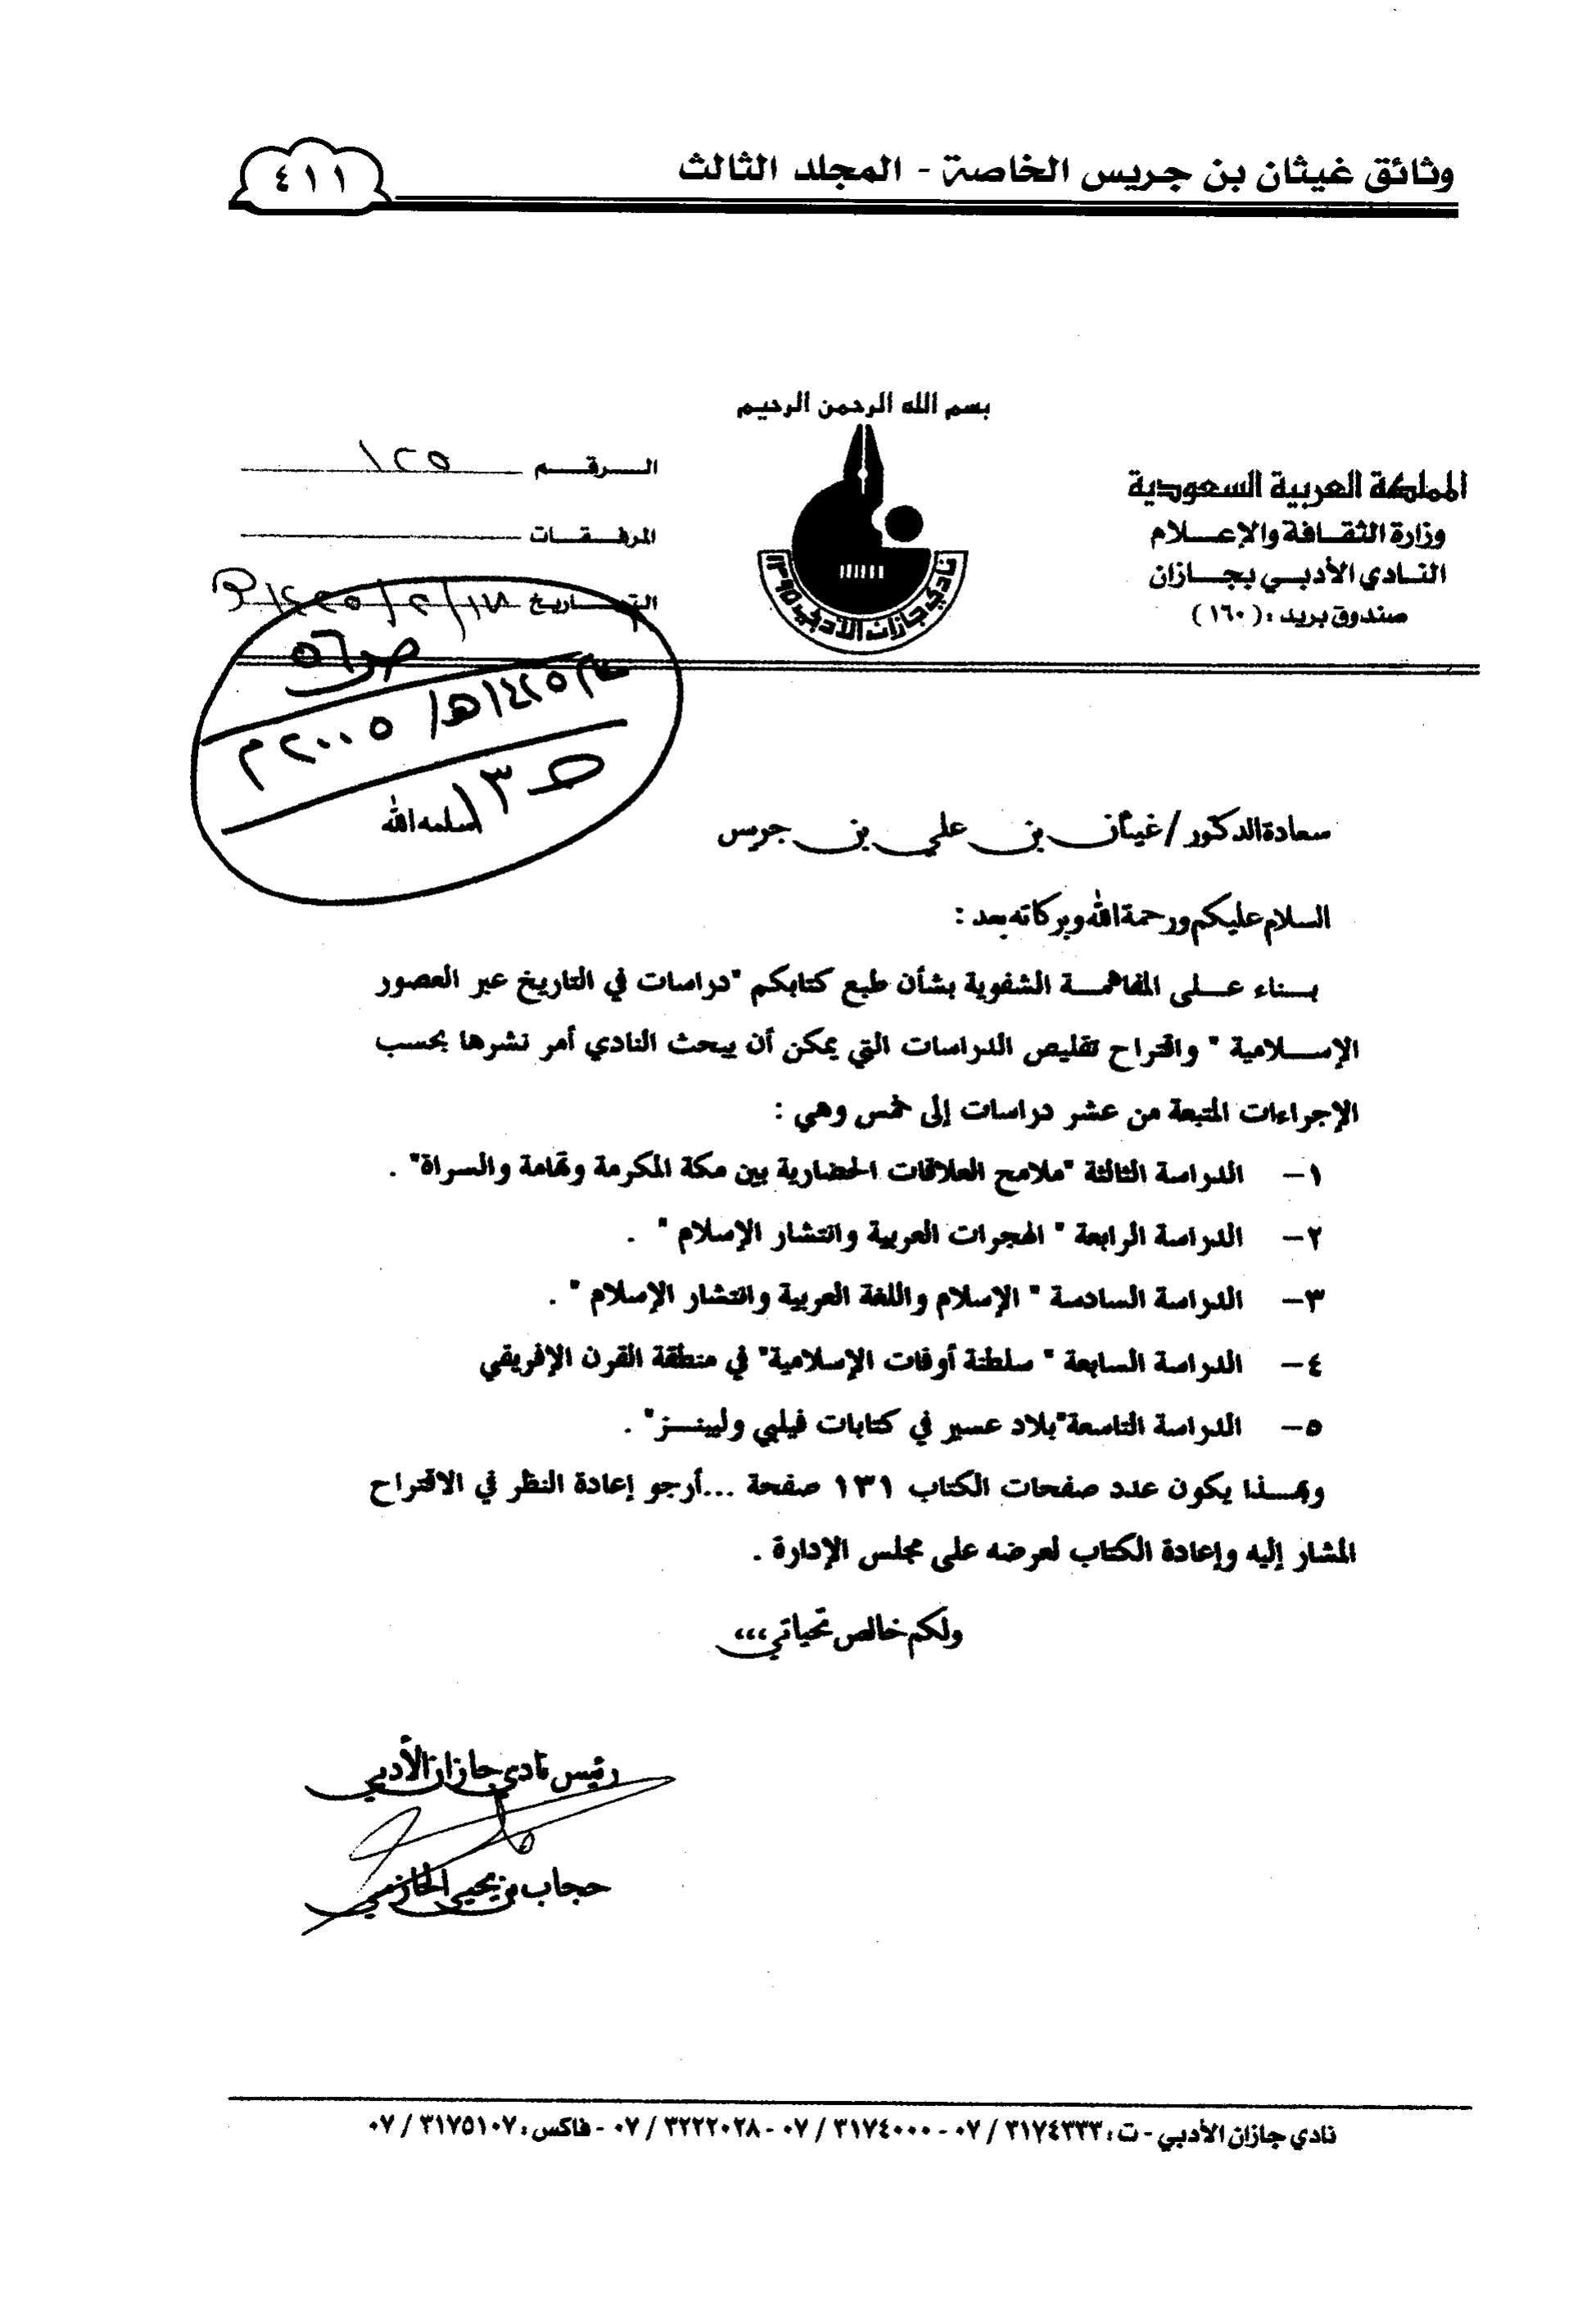 وثائق غيثان بن جريس الخاصة - المجلد الثالث
٤١١
بسم الله الرحمن الرحيم
المملكة العربية السعودية
وزارة الثقــافة والإعــلام
النـادي الأدبــي بجــازان
صندوق بريد : ( ١٦٠ )
نادي جازان الأدبي ١٣٩٥
الــرقــم ١٢٥
المرفــقــات
التــاريخ ١٨/٢/١٤٢٥هـ
ص٥٦
عام ١٤٢٥هـ/ ٢٠٠٥م
سعادة الدكتور / غيثان بن علي بن جريس سلمه الله
السلام عليكم ورحمة الله وبركاته بعد :
بــناء عــلى المفاهمــة الشفوية بشأن طبع كتابكم "دراسات في التاريخ عبر العصور
الإســلامية " واقتراح تقليص الدراسات التي يمكن أن يبحث النادي أمر نشرها بحسب
الإجراءات المتبعة من عشر دراسات إلى خمس وهي :
١- الدراسة الثالثة "ملامح العلاقات الحضارية بين مكة المكرمة وتهامة والسراة" .
٢- الدراسة الرابعة " الهجرات العربية وانتشار الإسلام " .
٣- الدراسة السادسة " الإسلام واللغة العربية وانتشار الإسلام " .
٤- الدراسة السابعة " سلطنة أوفات الإسلامية" في منطقة القرن الإفريقي
٥- الدراسة التاسعة"بلاد عسير في كتابات فيلبي وليبنــز" .
وبهــذا يكون عدد صفحات الكتاب ١٣١ صفحة ...أرجو إعادة النظر في الاقتراح
المشار إليه وإعادة الكتاب لعرضه على مجلس الإدارة .
ولكم خالص تحياتي،،،
رئيس نادي جازان الأدبي
حجاب بن يحيى الحازمي
نادي جازان الأدبي - ت : ٣١٧٤٣٣٣ / ٠٧ - ٣١٧٤٠٠٠ / ٠٧ - ٣٢٢٢٠٢٨ / ٠٧ - فاكس : ٣١٧٥١٠٧ / ٠٧